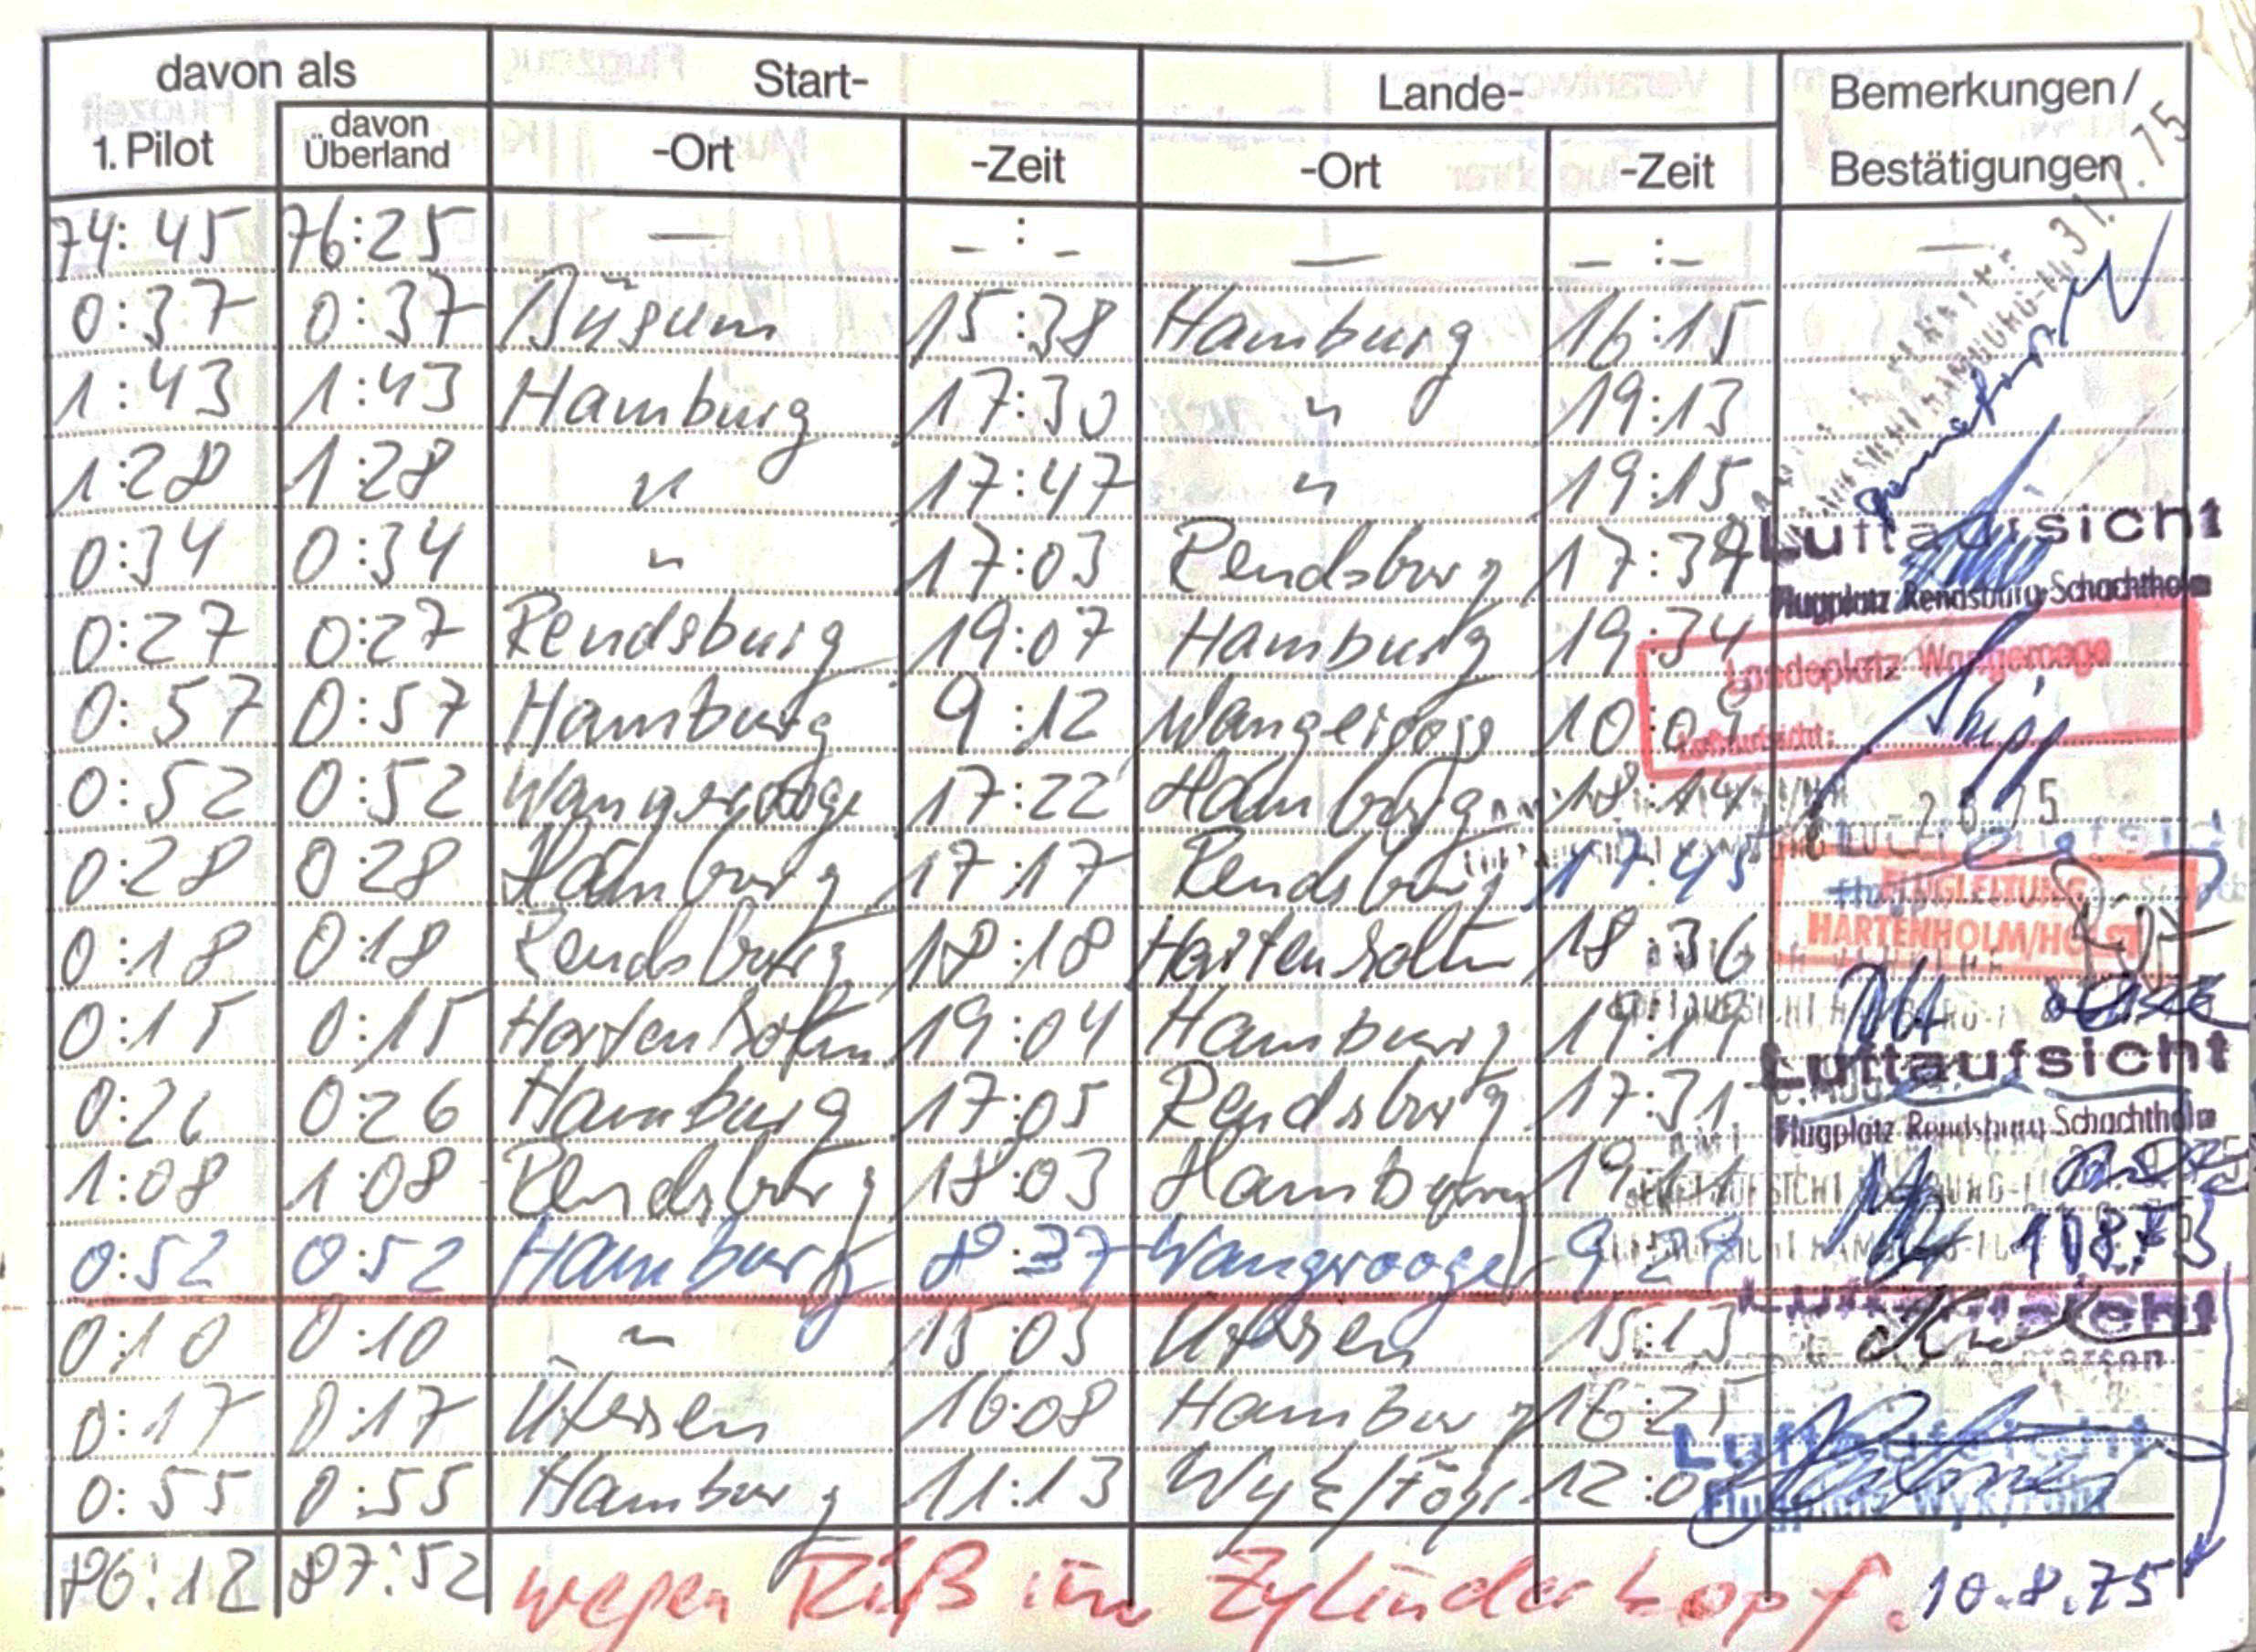 davon als Start- Lande- Bemerkungen/
1. Pilot davon Überland -Ort -Zeit -Ort -Zeit Bestätigungen
74:45 76:25 — -:- — -:- —
31.7.75
0:37 0:37 Büsum 15:38 Hamburg 16:15
1:43 1:43 Hamburg 17:30 " 19:13
1:28 1:28 " 17:47 " 19:15
Luftaufsicht
0:34 0:34 " 17:03 Rendsburg 17:37
Flugplatz Rendsburg-Schachtholm
0:27 0:27 Rendsburg 19:07 Hamburg 19:34
Landeplatz Wangerooge
0:57 0:57 Hamburg 9:12 Wangerooge 10:09
Luftaufsicht:
0:52 0:52 Wangerooge 17:22 Hamburg 18:14
0:28 0:28 Hamburg 17:17 Rendsburg 17:45
FLUGLEITUNG
HARTENHOLM/HOLST
0:18 0:18 Rendsburg 18:18 Hartenholm 18:36
0:15 0:15 Hartenholm 19:04 Hamburg 19:19
Luftaufsicht
0:26 0:26 Hamburg 17:05 Rendsburg 17:31
Flugplatz Rendsburg-Schachtholm
1:08 1:08 Rendsburg 18:03 Hamburg 19:11
0:52 0:52 Hamburg 8:37 Wangerooge 9:29
Luftaufsicht
0:10 0:10 " 15:03 Ütersen 15:13
0:17 0:17 Ütersen 16:08 Hamburg 16:25
Luftaufsicht
0:55 0:55 Hamburg 11:13 Wyk/Föhr 12:0
Flugplatz Wyk/Föhr
86:12 87:52 wegen Riß im Zylinderkopf. 10.8.75